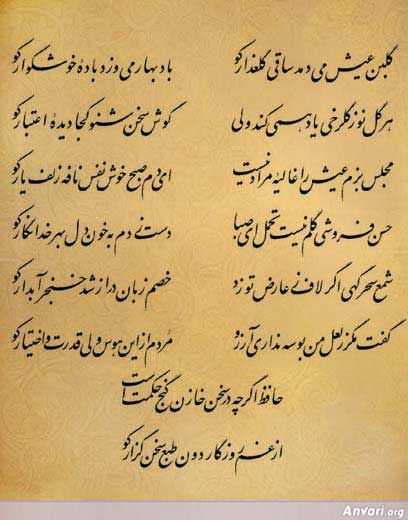 گلبن عیش می دمد ساقی گلعذار کو
باد بهار می وزد بادهٔ خوشگوار کو
هر گل نو ز گلرخی یاد همی کند ولی
گوش سخن شنو کجا دیدهٔ اعتبار کو
مجلس بزم عیش را غالیهٔ مراد نیست
ای دم صبح خوش نفس نافهٔ زلف یار کو
حسن فروشی گلم نیست تحمل ای صبا
دست زدم به خون دل بهر خدا نگار کو
شمع سحرگهی اگر لاف ز عارض تو زد
خصم زبان دراز شد خنجر آبدار کو
گفت مگر ز لعل من بوسه نداری آرزو
مردم از این هوس ولی قدرت و اختیار کو
حافظ اگرچه در سخن خازن گنج حکمت است
از غم روزگار دون طبع سخن گزار کو
Anvari.org